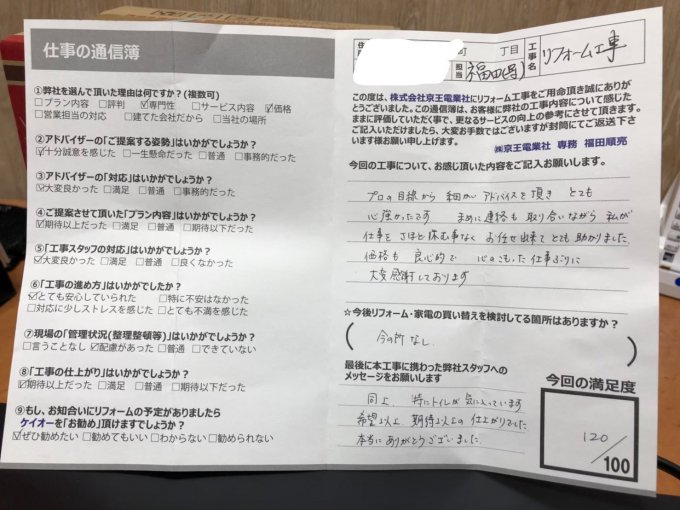 仕事の通信簿
①弊社を選んで頂いた理由は何ですか?(複数可)
□プラン内容 □評判 ☑専門性 □サービス内容 ☑価格
□営業担当の対応 □建てた会社だから □当社の場所
②アドバイザーの「ご提案する姿勢」はいかがでしょうか?
☑十分誠意を感じた □一生懸命だった □普通 □事務的だった
③アドバイザーの「対応」はいかがでしょうか?
☑大変良かった □満足 □普通 □事務的だった
④ご提案させて頂いた「プラン内容」はいかがでしょうか?
☑期待以上だった □満足 □普通 □期待以下だった
⑤「工事スタッフの対応」はいかがでしょうか?
☑大変良かった □満足 □普通 □良くなかった
⑥「工事の進め方」はいかがでしたか?
☑とても安心していられた □特に不安はなかった
□対応に少しストレスを感じた □とても不満を感じた
⑦現場の「管理状況(整理整頓等)」はいかがでしょうか?
□言うことなし ☑配慮があった □普通 □できていない
⑧「工事の仕上がり」はいかがでしょうか?
☑期待以上だった □満足 □普通 □期待以下だった
⑨もし、お知合いにリフォームの予定がありましたら
ケイオーを「お勧め」頂けますでしょうか?
☑ぜひ勧めたい □勧めてもいい □わからない □勧められない
町 丁目
担当 福田(昌)
工事名 リフォーム工事
この度は、株式会社京王電業社にリフォーム工事をご用命頂き誠にありが
とうございました。この通信簿は、お客様に弊社の工事内容について感じた
ままに評価していただく事で、更なるサービスの向上の参考にさせて頂きます。
ご記入いただけましたら、大変お手数ではございますが封筒にてご返送下さ
います様お願い申し上げます。
㈱京王電業社 専務 福田順亮
今回の工事について、お感じ頂いた内容をご記入お願いします。
プロの目線から 細かい アドバイスを頂き とても
心強かったです まめに連絡も取り合いながら 私が
仕事を さほど 休む事なく お任せ出来て とても 助かりました
価格も 良心的で 心のこもった仕事ぶりに
大変感謝しております
☆今後リフォーム・家電の買い替えを検討してる箇所はありますか?
( 今の所 なし )
最後に本工事に携わった弊社スタッフへの
メッセージをお願いします
同上 特にトイレが気に入っています
希望以上 期待以上の 仕上がりでした
本当に ありがとうございました
今回の満足度
120
/100